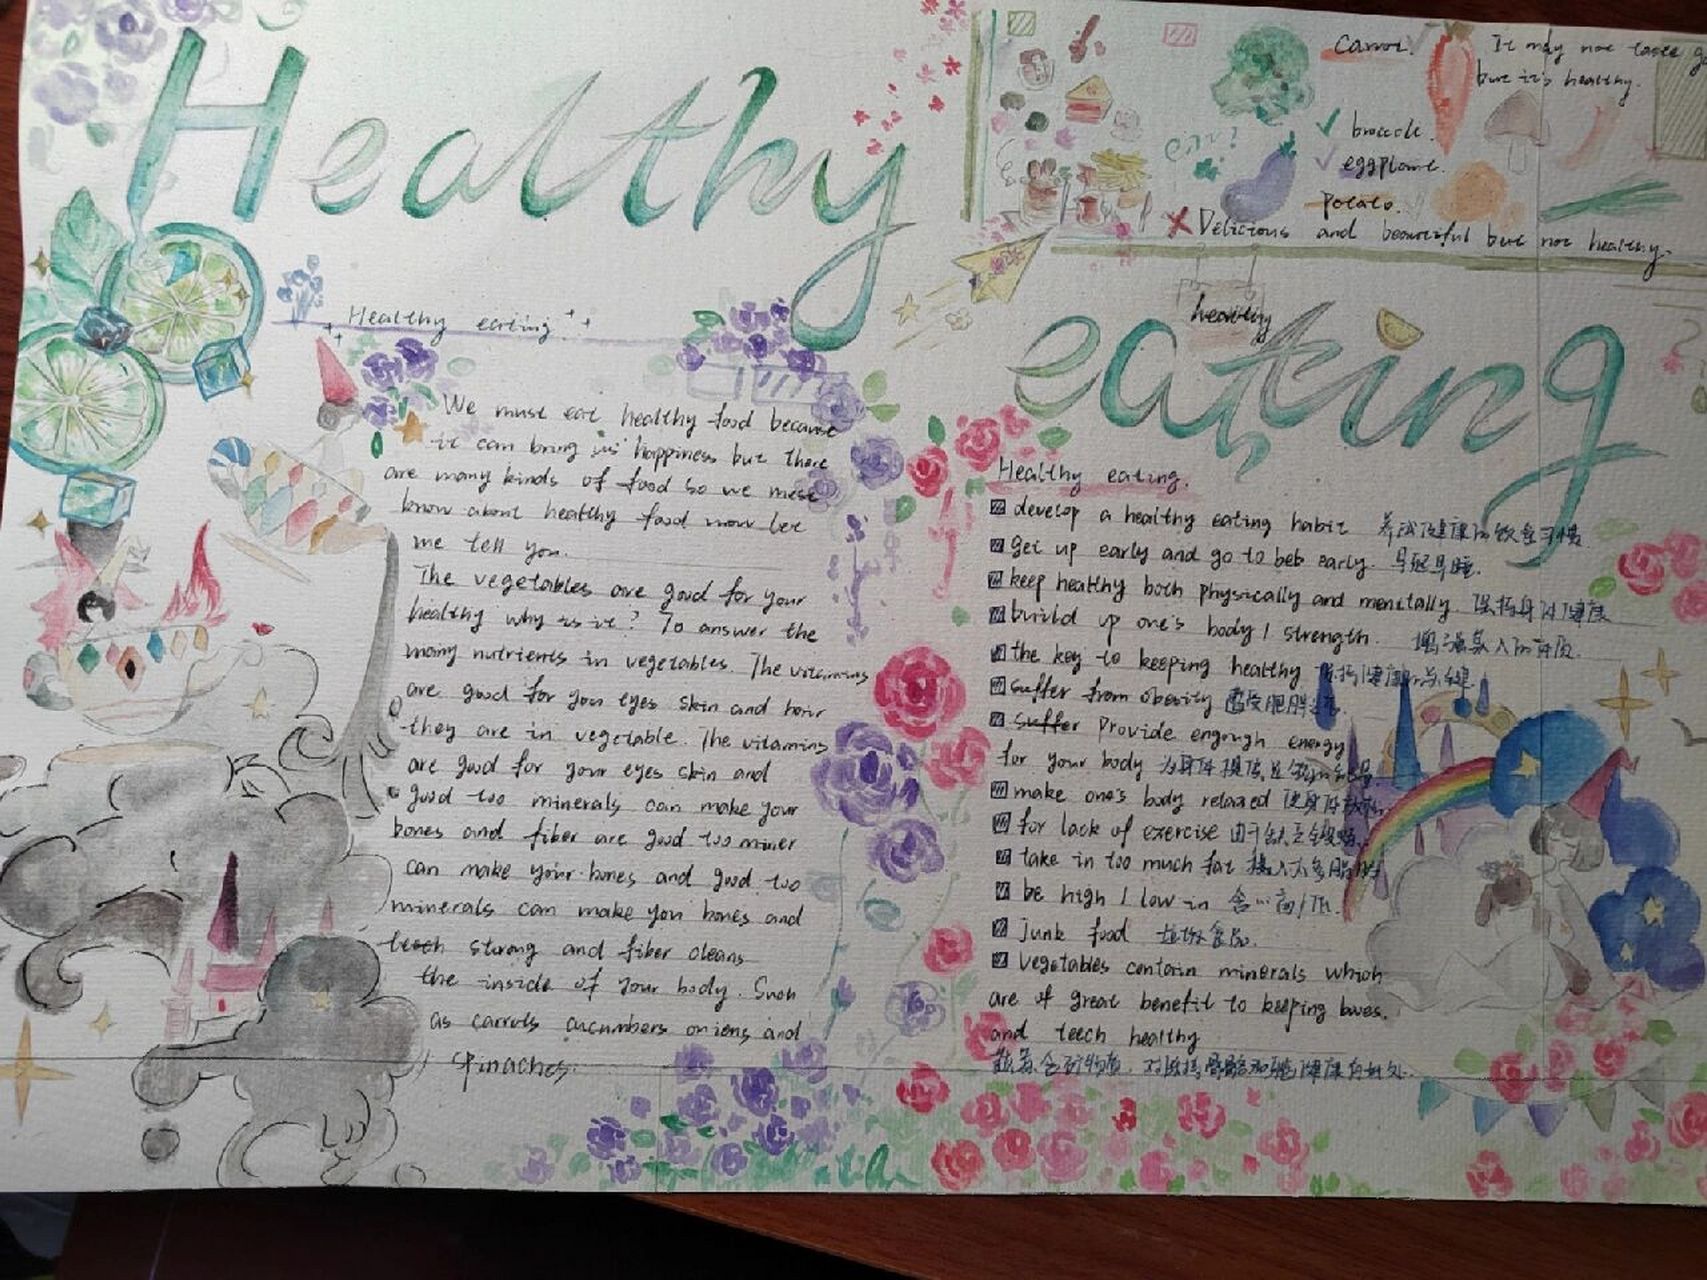 Healthy
eating
Carrot.
It may not taste
but it's healthy.
broccoli.
eggplant.
Potato.
Delicious and beautiful but not healthy.
healthy
Healthy eating
We must eat healthy food because
it can bring us happiness but there
are many kinds of food so we must
know about healthy food now let
me tell you.
The vegetables are good for your
healthy why is it? To answer the
many nutrients in vegetables. The vitamins
are good for your eyes skin and hair
they are in vegetable. The vitamins
are good for your eyes skin and
good too minerals can make your
bones and fiber are good too miner
can make your bones and good too
minerals can make you bones and
teeth strong and fiber cleans
the inside of your body. Such
as carrots cucumbers onions and
spinaches.
Healthy eating.
develop a healthy eating habit 养成健康的饮食习惯
get up early and go to beb early. 早起早睡.
keep healthy both physically and menitally. 保持身体健康
build up one's body / strength. 增强某人的体质.
the key to keeping healthy 保持健康的关键.
suffer from obesity 遭受肥胖
suffer provide engough energy
for your body 为身体提供足够的能量
make one's body relaxed 使身体放松
for lack of exercise 由于缺乏锻炼.
take in too much fat 摄入太多脂肪
be high / low in 含…高/低.
junk food 垃圾食品.
vegetables contain minerals which
are of great benefit to keeping bones.
and teech healthy
蔬菜含矿物质, 对保持骨骼和 健康有好处.